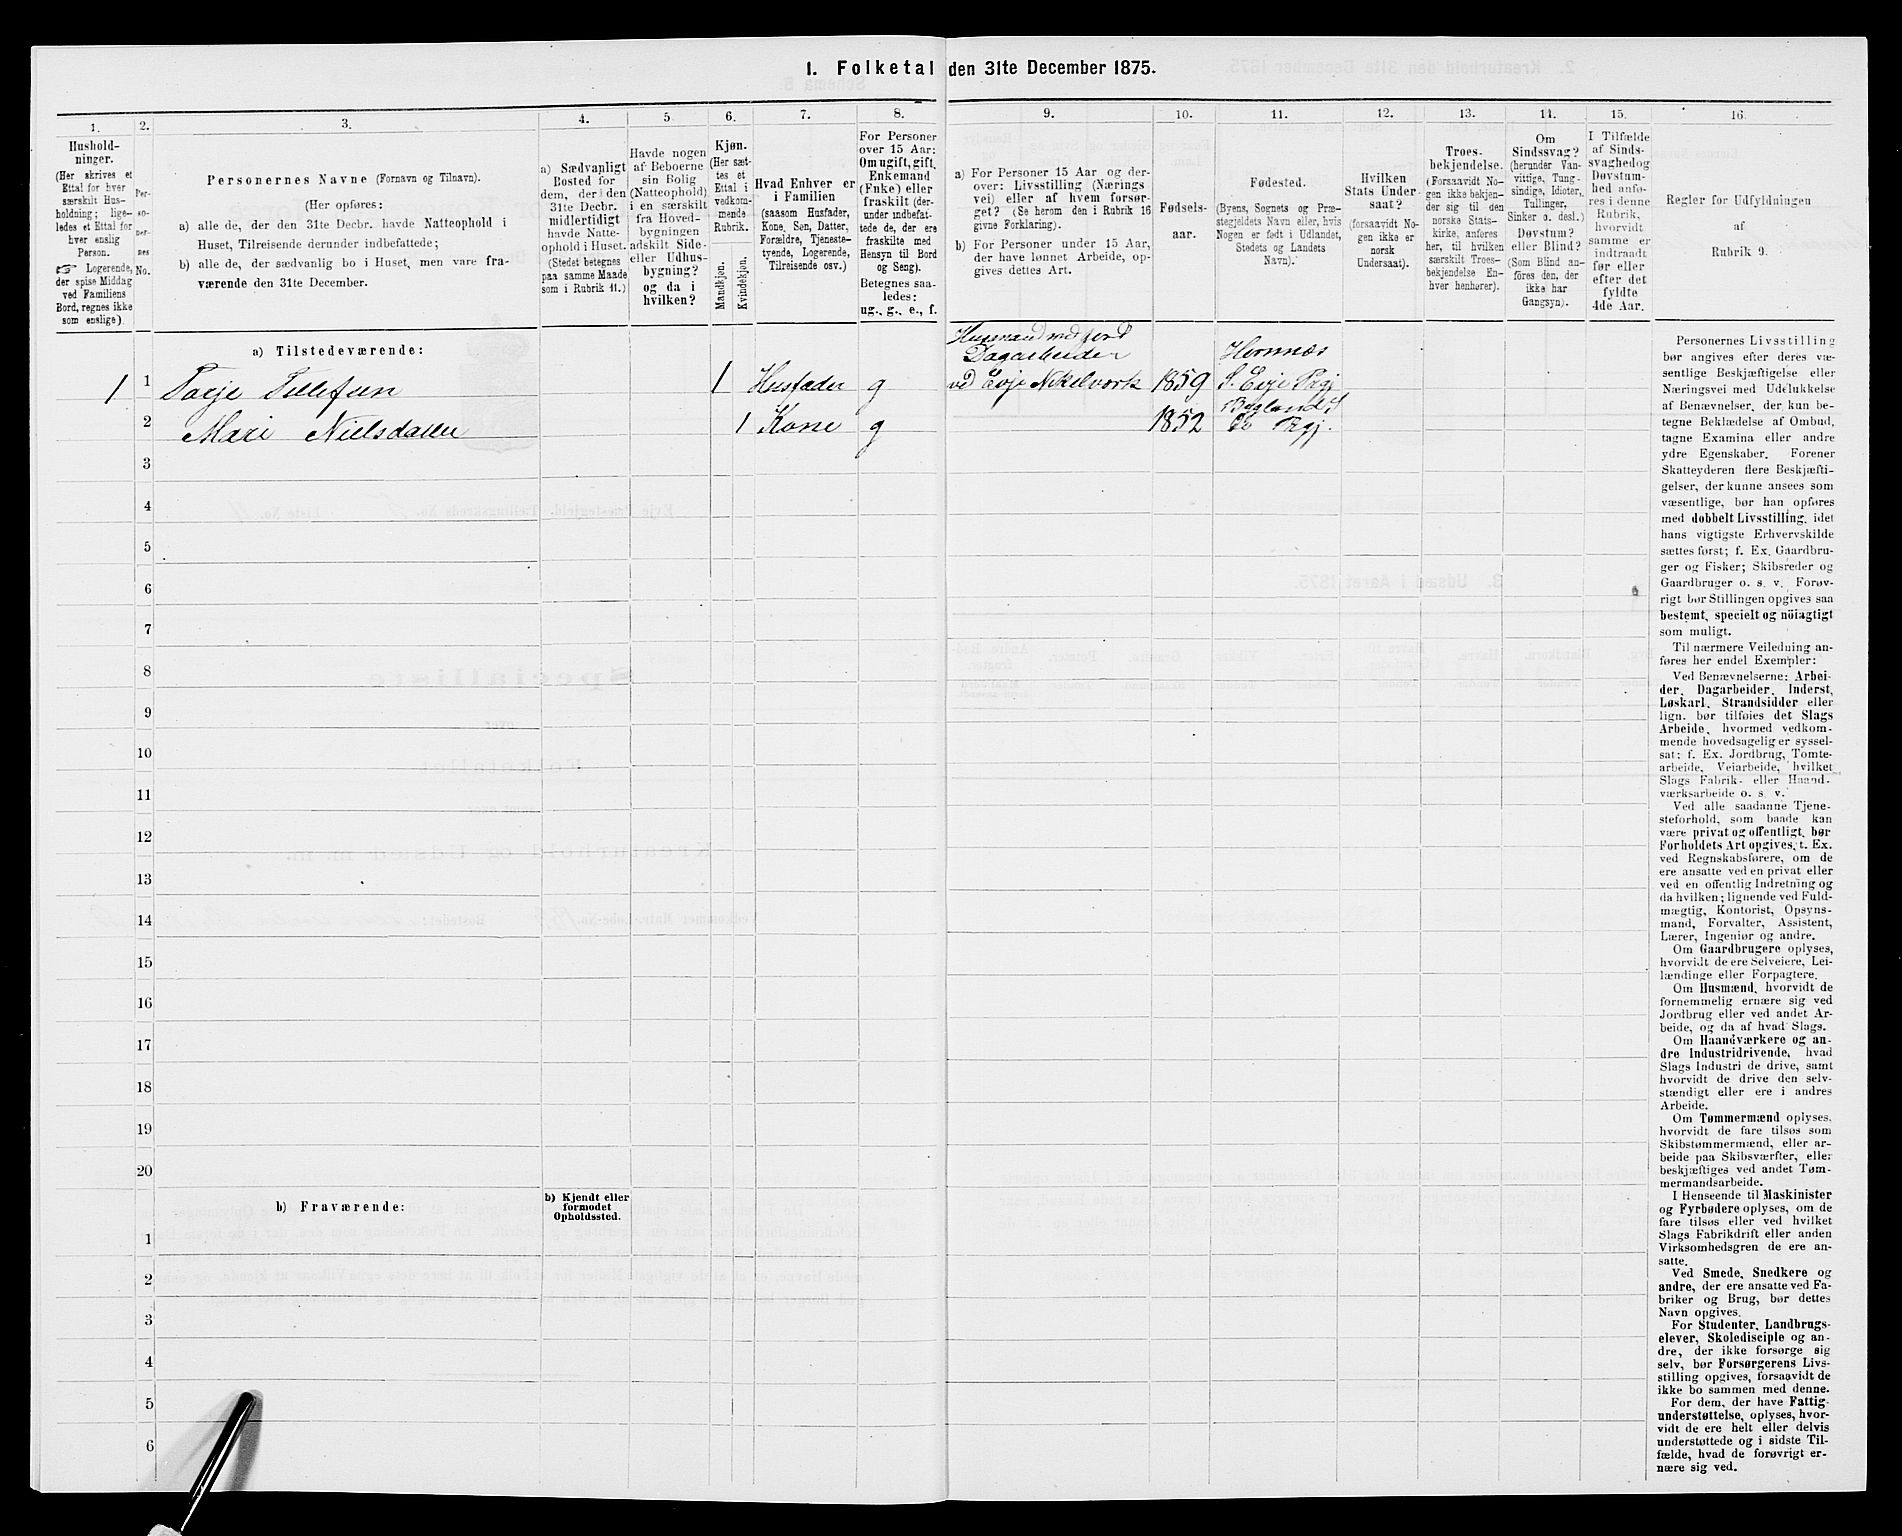 1. Folketal den 31te December 1875.
1.
Hushold-
ninger.
(Her skrives et
Ettal for hver
særskilt Hus-
holdning; lige-
ledes et Ettal for
hver enslig
Person.
☞ Logerende,
der spise Middag
ved Familiens
Bord, regnes ikke
som enslige).
2.
Per-
so-
ner-
nes
No.
3.
Personernes Navne (Fornavn og Tilnavn).
(Her opføres:
a) alle de, der den 31te Decbr. havde Natteophold i
Huset, Tilreisende derunder indbefattede;
b) alle de, der sædvanlig bo i Huset, men vare fra-
værende den 31te December.
4.
a) Sædvanligt
Bosted for
dem, der i den
31te Decbr.
midlertidigt
havde Natte-
ophold i Huset.
(Stedet betegnes
paa samme Maade
som i Rubrik 11.)
5.
Havde nogen
af Beboerne
sin Bolig
(Natteophold)
i en særskilt
fra Hoved-
bygningen
adskilt Side-
eller Udhus-
bygning?
og da i
hvilken?
6.
Kjøn.
(Her sæt-
tes et
Ettal i
vedkom-
mende
Rubrik.
Mandkjøn.
Kvindekjøn.
7.
Hvad Enhver er
i Familien
(saasom Husfader,
Kone, Søn, Datter,
Forældre, Tjeneste-
tyende, Logerende,
Tilreisende osv.)
8.
For Personer
over 15 Aar:
Om ugift, gift,
Enkemand
(Enke) eller
fraskilt (der-
under indbefat-
tede de, der ere
fraskilte med
Hensyn til Bord
og Seng).
Betegnes saa-
ledes:
ug., g., e., f.
9.
a) For Personer 15 Aar og der-
over: Livsstilling (Nærings
vei) eller af hvem forsør-
get? (Se herom den i Rubrik 16
givne Forklaring).
b) For Personer under 15 Aar,
der have lønnet Arbeide, op-
gives dettes Art.
10.
Fødsels-
aar.
11.
Fødested.
(Byens, Sognets og Præ-
stegjeldets Navn eller, hvis
Nogen er født i Udlandet,
Stedets og Landets
Navn).
12.
Hvilken
Stats Under-
saat?
(forsaavidt No-
gen ikke er
norsk
Undersaat).
13.
Troes-
bekjendelse.
(Forsaavidt No-
gen ikke bekjen-
der sig til den
norske Stats-
kirke, anføres
her, til hvilken
særskilt Troes-
bekjendelse En-
hver henhører).
14.
Om
Sindssvag?
(herunder Van-
vittige, Tung-
sindige, Idioter,
Tullinger,
Sinker o. desl.)
Døvstum?
eller Blind?
(Som Blind an-
føres den, der
ikke har
Gangsyn).
15.
I Tilfælde
af Sinds-
svaghed og
Døvstum-
hed anfø-
res i denne
Rubrik,
hvorvidt
samme er
indtraadt
før eller
efter det
fyldte
4de Aar.
16.
Regler for Udfyldningen
af
Rubrik 9.
a) Tilstedeværende:
1 1 Torje Tellefsen 1 Husfader g Husmand med jord Dagarbeider ved Evje Nikelverk 1859 Hornnæs S. Evje Prgj
2 Mari Nielsdatter 1 Kone g 1852 Bygland S Do Prgj.
3
4
5
6
7
8
9
10
11
12
13
14
15
16
17
18
19
20
b) Fraværende:
b) Kjendt eller
formodet
Opholdssted.
1
2
3
4
5
6
Personernes Livsstilling
bør angives efter deres væ-
sentlige Beskjæftigelse eller
Næringsvei med Udelukkelse
af Benævnelser, der kun be-
tegne Beklædelse af Ombud,
tagne Examina eller andre
ydre Egenskaber. Forener
Skatteyderen flere Beskjæfti-
gelser, der kunne ansees som
væsentlige, bør han opføres
med dobbelt Livsstilling, idet
hans vigtigste Erhvervskilde
sættes først; f. Ex. Gaardbru-
ger og Fisker; Skibsreder og
Gaardbruger o. s. v. Forøv-
rigt bør Stillingen opgives saa
bestemt, specielt og nøiagtigt
som muligt.
Til nærmere Veiledning an-
føres her endel Exempler:
Ved Benævnelserne: Arbei-
der, Dagarbeider, Inderst,
Løskarl, Strandsidder eller
lign. bør tilføies det Slags
Arbeide, hvormed vedkom-
mende hovedsagelig er syssel-
sat; f. Ex. Jordbrug, Tomte-
arbeide, Veiarbeide, hvilket
Slags Fabrik- eller Haand-
værksarbeide o. s. v.
Ved alle saadanne Tjene-
steforhold, som baade kan
være privat og offentligt, bør
Forholdets Art opgives, t. Ex.
ved Regnskabsførere, om de
ere ansatte ved en privat eller
ved en offentlig Indretning og
da hvilken; lignende ved Fuld-
mægtig, Kontorist, Opsyns-
mand, Forvalter, Assistent,
Lærer, Ingeniør og andre.
Om Gaardbrugere oplyses,
hvorvidt de ere Selveiere, Lei-
lændinge eller Forpagtere.
Om Husmænd, hvorvidt de
fornemmelig ernære sig ved
Jordbrug eller ved andet Ar-
beide, og da af hvad Slags.
Om Haandværkere og an-
dre Industridrivende, hvad
Slags Industri de drive, samt
hvorvidt de drive den selv-
stændigt eller ere i andres
Arbeide.
Om Tømmermænd oplyses,
hvorvidt de fare tilsøs som
Skibstømmermænd, eller ar-
beide paa Skibsværfter, eller
beskjæftiges ved andet Tøm-
mermandsarbeide.
I Henseende til Maskinister
og Fyrbødere oplyses, om de
fare tilsøs eller ved hvilket
Slags Fabrikdrift eller anden
Virksomhedsgren de ere an-
satte.
Ved Smede, Snedkere og
andre, der ere ansatte ved Fa-
briker og Brug, bør dettes
Navn opgives.
For Studenter, Landbrugs-
elever, Skoledisciple og an-
dre, der ikke forsørge sig
selv, bør Forsørgerens Livs-
stilling opgives, forsaavidt de
ikke bo sammen med denne.
For dem, der have Fattig-
understøttelse, oplyses, hvor-
vidt de ere helt eller delvis
understøttede og i sidste Til-
fælde, hvad de forøvrigt er-
nære sig ved.